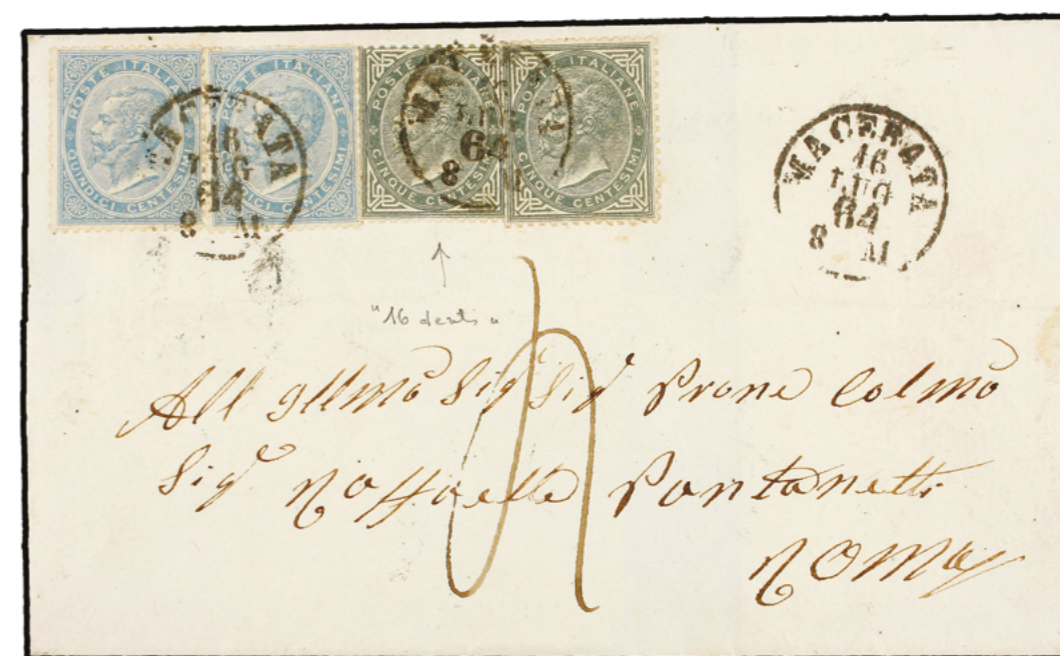 POSTE ITALIANE
QUINDICI CENTESIMI
POSTE ITALIANE
QUINDICI CENTESIMI
POSTE ITALIANE
CINQUE CENTESIMI
POSTE ITALIANE
CINQUE CENTESIMI
MACERATA
16
LUG
64
8 M
MACERATA
LUG
64
8 M
MACERATA
16
LUG
64
8 M
"16 dents"
All Illmo Sigr Sigr Prone Colmo
Sigr Raffaelle Pontanetti
Roma